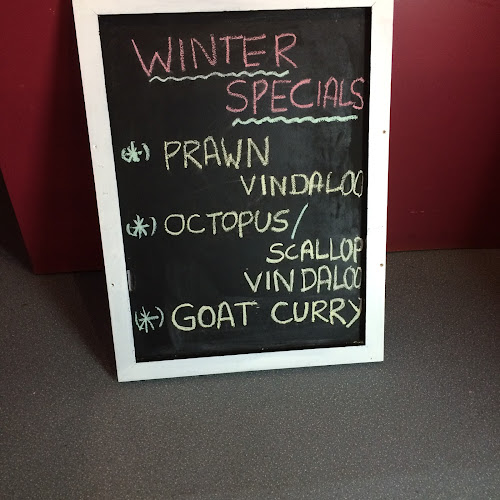 WINTER
SPECIALS
(*) PRAWN
VINDALOO
(*) OCTOPUS/
SCALLOP
VINDALOO
(*) GOAT CURRY